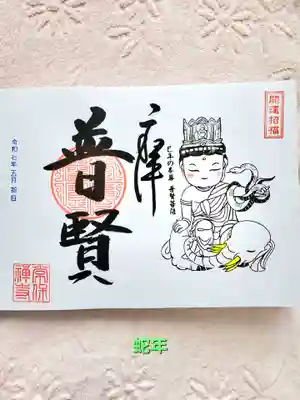 開運招福
巳年の本尊 普賢菩薩
普賢
令和七年 五月
常保
禅寺
蛇年